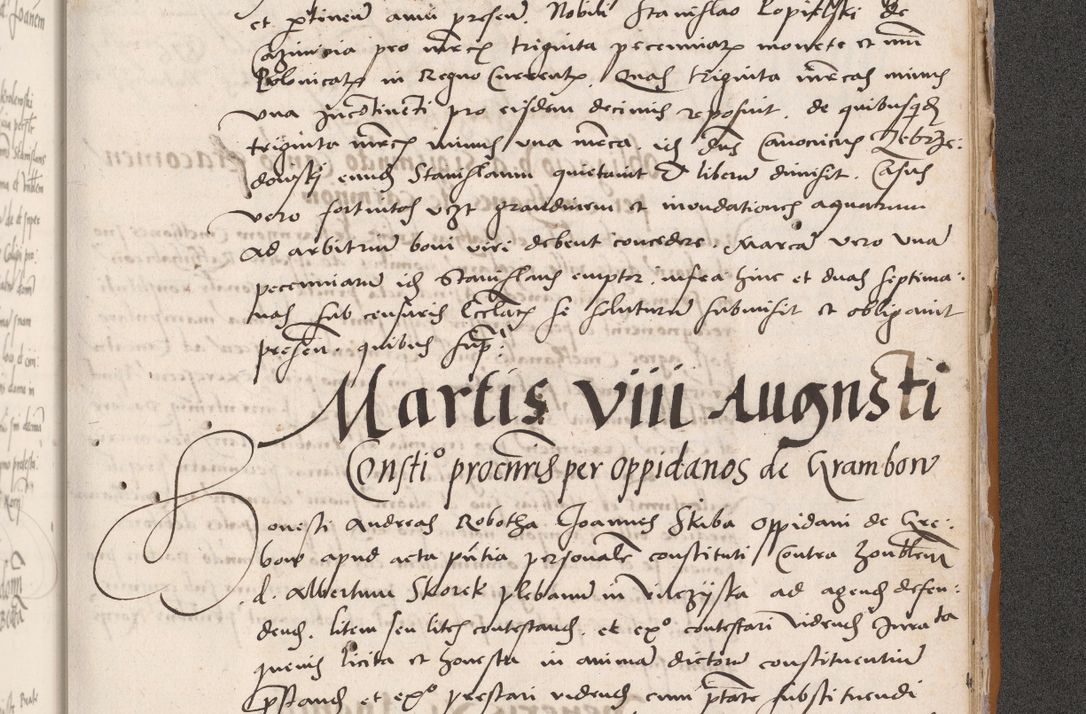 et pertinen anni presen. Nobili Stanislao Lopielski de
pro mrcis triginta pecuniar monete et nui
Polonicar in Regno Curren. Quas triginta mrcas minus
una incontinenti pro eisdem decimis reposuit. de quibusquidem
triginta mrcis minus una mrca. ide Dns Canonicus Zebrze:
dowskj eunde Stanislaum quietavit et liberu dimisit. Casus
vero fortuitos vizt grandinem et inundationes aquarum
ad arbitrium boni viri debent concedere Marca vero una
pecuniaru ide Stanislaus emptor infra hinc et duas septima:
nas sub censuris Ecclar se soluturu submisit et obligavit
presen. quibus sup:
Martis viii Augusti
Consti° procuris per oppidanos de Grambow
Honesti Andreas Robotha Joannes Skiba Oppidani de Gre:
bow apud acta pntia personale constituti Contra honblem
d. Albertum Skorek plebanu in Vilczyska ad agend defen:
dend. litem seu lites contestand. et ex° contestari vidend Jurata
quevis licita et honesta in animam dictoru constituentiu
pstand et ex° prestari vidend cum ptate substituendi